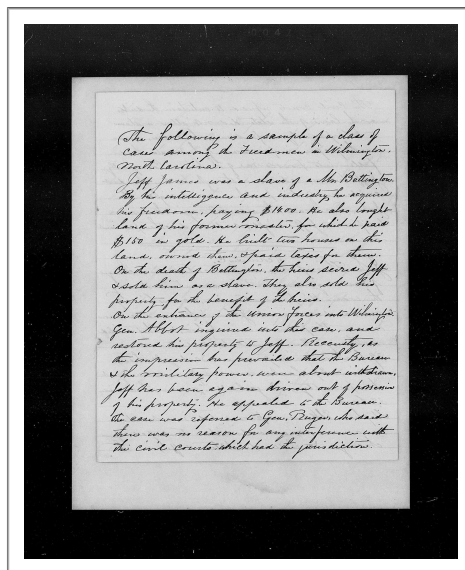 The following is a sample of a class of
cases among the Freedmen in Wilmington
North Carolina.
Jeff James was a slave of a Mr. Bettington.
By his intelligence and industry, he acquired
his freedom, paying $1400. He also bought
land of his former master, for which he paid
$150 in gold. He built two houses on this
land, owned them, & paid taxes for them.
On the death of Bettington, the heirs seized Jeff
& sold him as a slave. They also sold his
property for the benefit of the heirs.
On the entrance of the Union forces into Wilmington
Gen. Abbot inquired into his case, and
restored his property to Jeff. Recently, as
the impression has prevailed that the Bureau
& the military power were about withdrawn,
Jeff has been again driven out of possession
of his property. He appealed to the Bureau.
The case was referred to Gen. Ruger, who said
there was no reason for any interference with
the civil courts which had the jurisdiction.